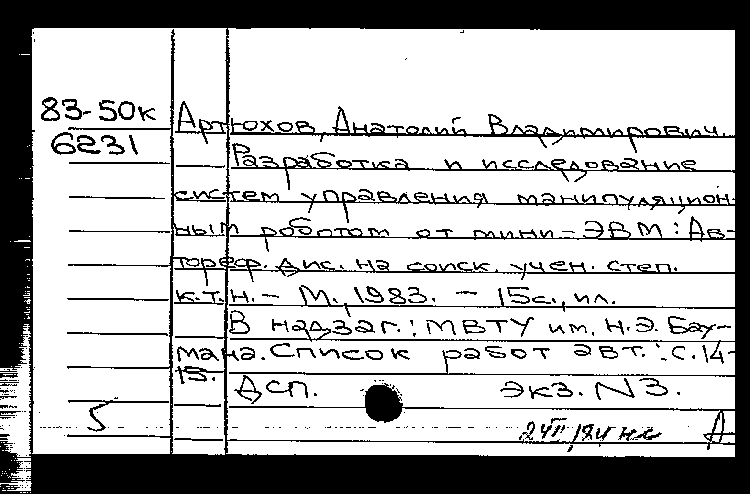 83-50к
6231
Артюхов, Анатолий Владимирович.
Разработка и исследование
систем управления манипуляцион-
ным роботом от мини-ЭВМ: Ав-
тореф. дис. на соиск. учен. степ.
к.т.н. - М., 1983. - 15с., ил.
В надзаг.: МВТУ им. Н.Э. Бау-
мана. Список работ авт.: с. 14-
15.
ДСП. экз. N3.
5
А